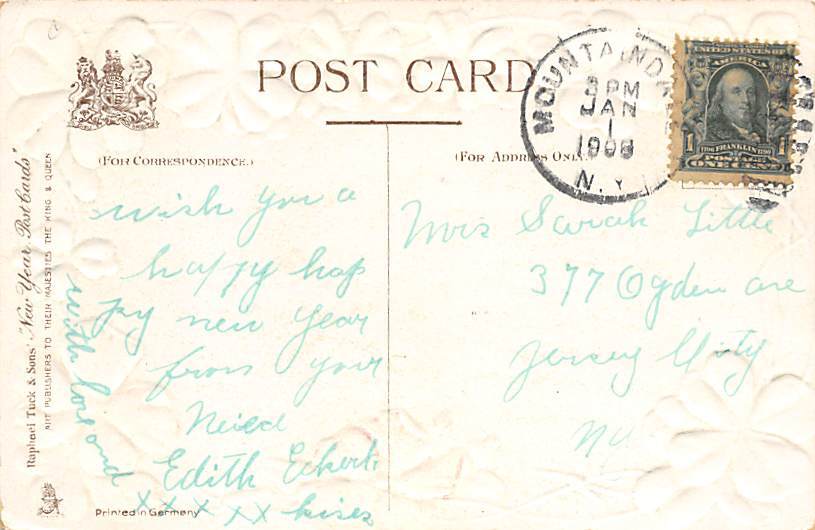 POST CARD
(FOR CORRESPONDENCE.)
wish you a
happy hap
py new year
from your
Neice
Edith Eckert
xxx xx kises
with love and
(FOR ADDRESS ONLY.)
Mrs Sarah Little
377 Ogden ave
Jersey City
NJ
MOUNTAINDALE
3 PM
JAN
1
1908
N.Y.
UNITED STATES OF
AMERICA
1 1706 FRANKLIN 1790 1
POSTAGE
ONE CENT
Raphael Tuck & Sons' "New Year Post Cards"
ART PUBLISHERS TO THEIR MAJESTIES THE KING & QUEEN
Printed in Germany